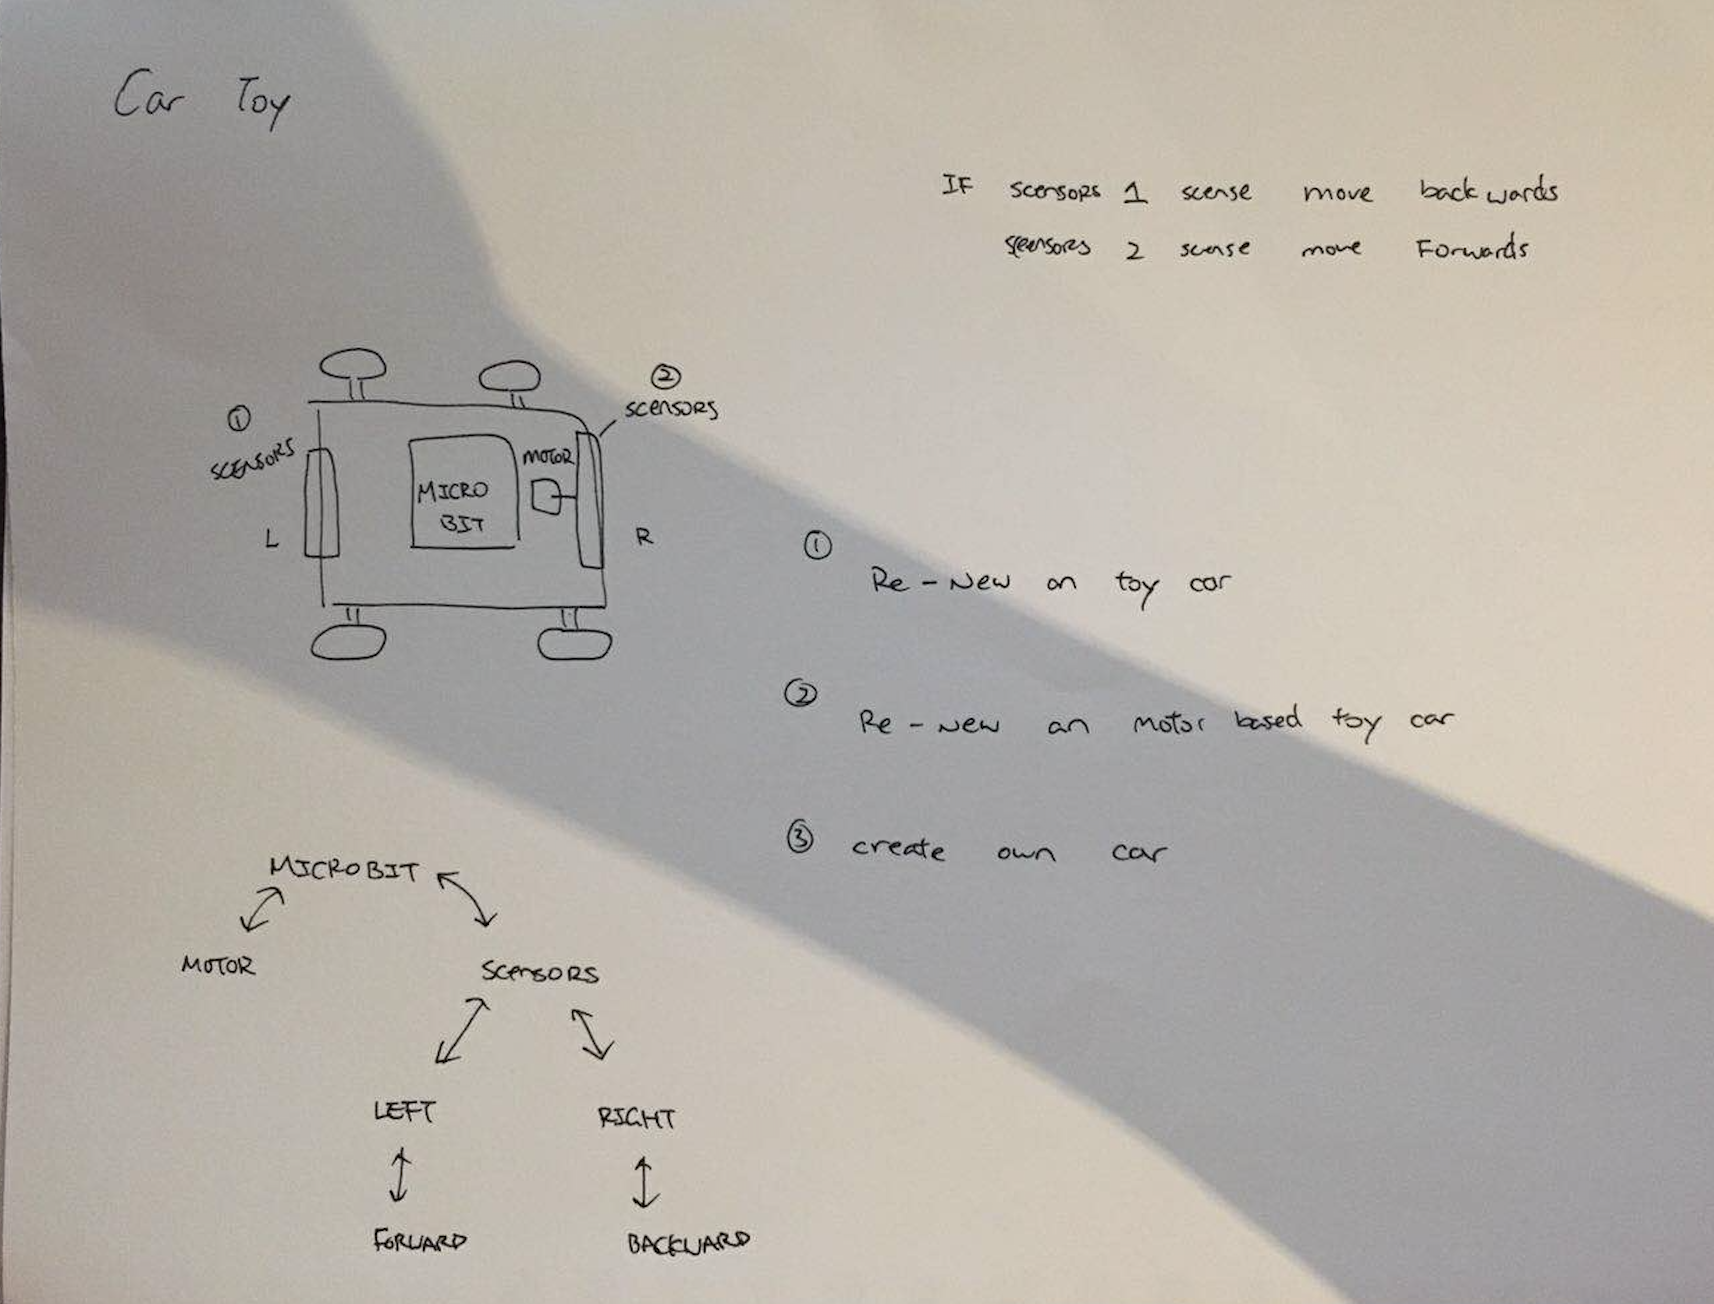 Car Toy
IF scensors 1 scense move backwards
scensors 2 scense move Forwards
②
scensors
①
SCENSORS
MOTOR
MICRO
BIT
L
R
①
Re-New an toy car
②
Re-New an motor based toy car
③ create own car
MICROBIT
MOTOR
SCENSORS
LEFT
RIGHT
FORWARD
BACKWARD